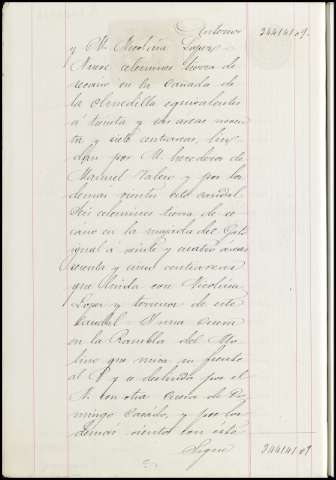 Antonio 344141 09.
y M. Nicolina Lopez
Nueve celemines tierra de
secano en la Cañada de
la Almedilla equivalentes
á treinta y dos areas noven
ta y siete centiareas, lin
dan por M. herederos de
Manuel Valero y por los
demas vientos este caudal.
Seis celemines tierra de se
cano en la majada del Gato
igual á veinte y cuatro áreas
y una centiareas
que linda con Nicolina
Lopez y terrenos de este
caudal= Y una cueva
en la Rambla del Mo
lino que mira su frente
al P. y a deslinda por el
N. con otra cueva de Do
mingo y por los
demas vientos con esta
Sigue 344141 09